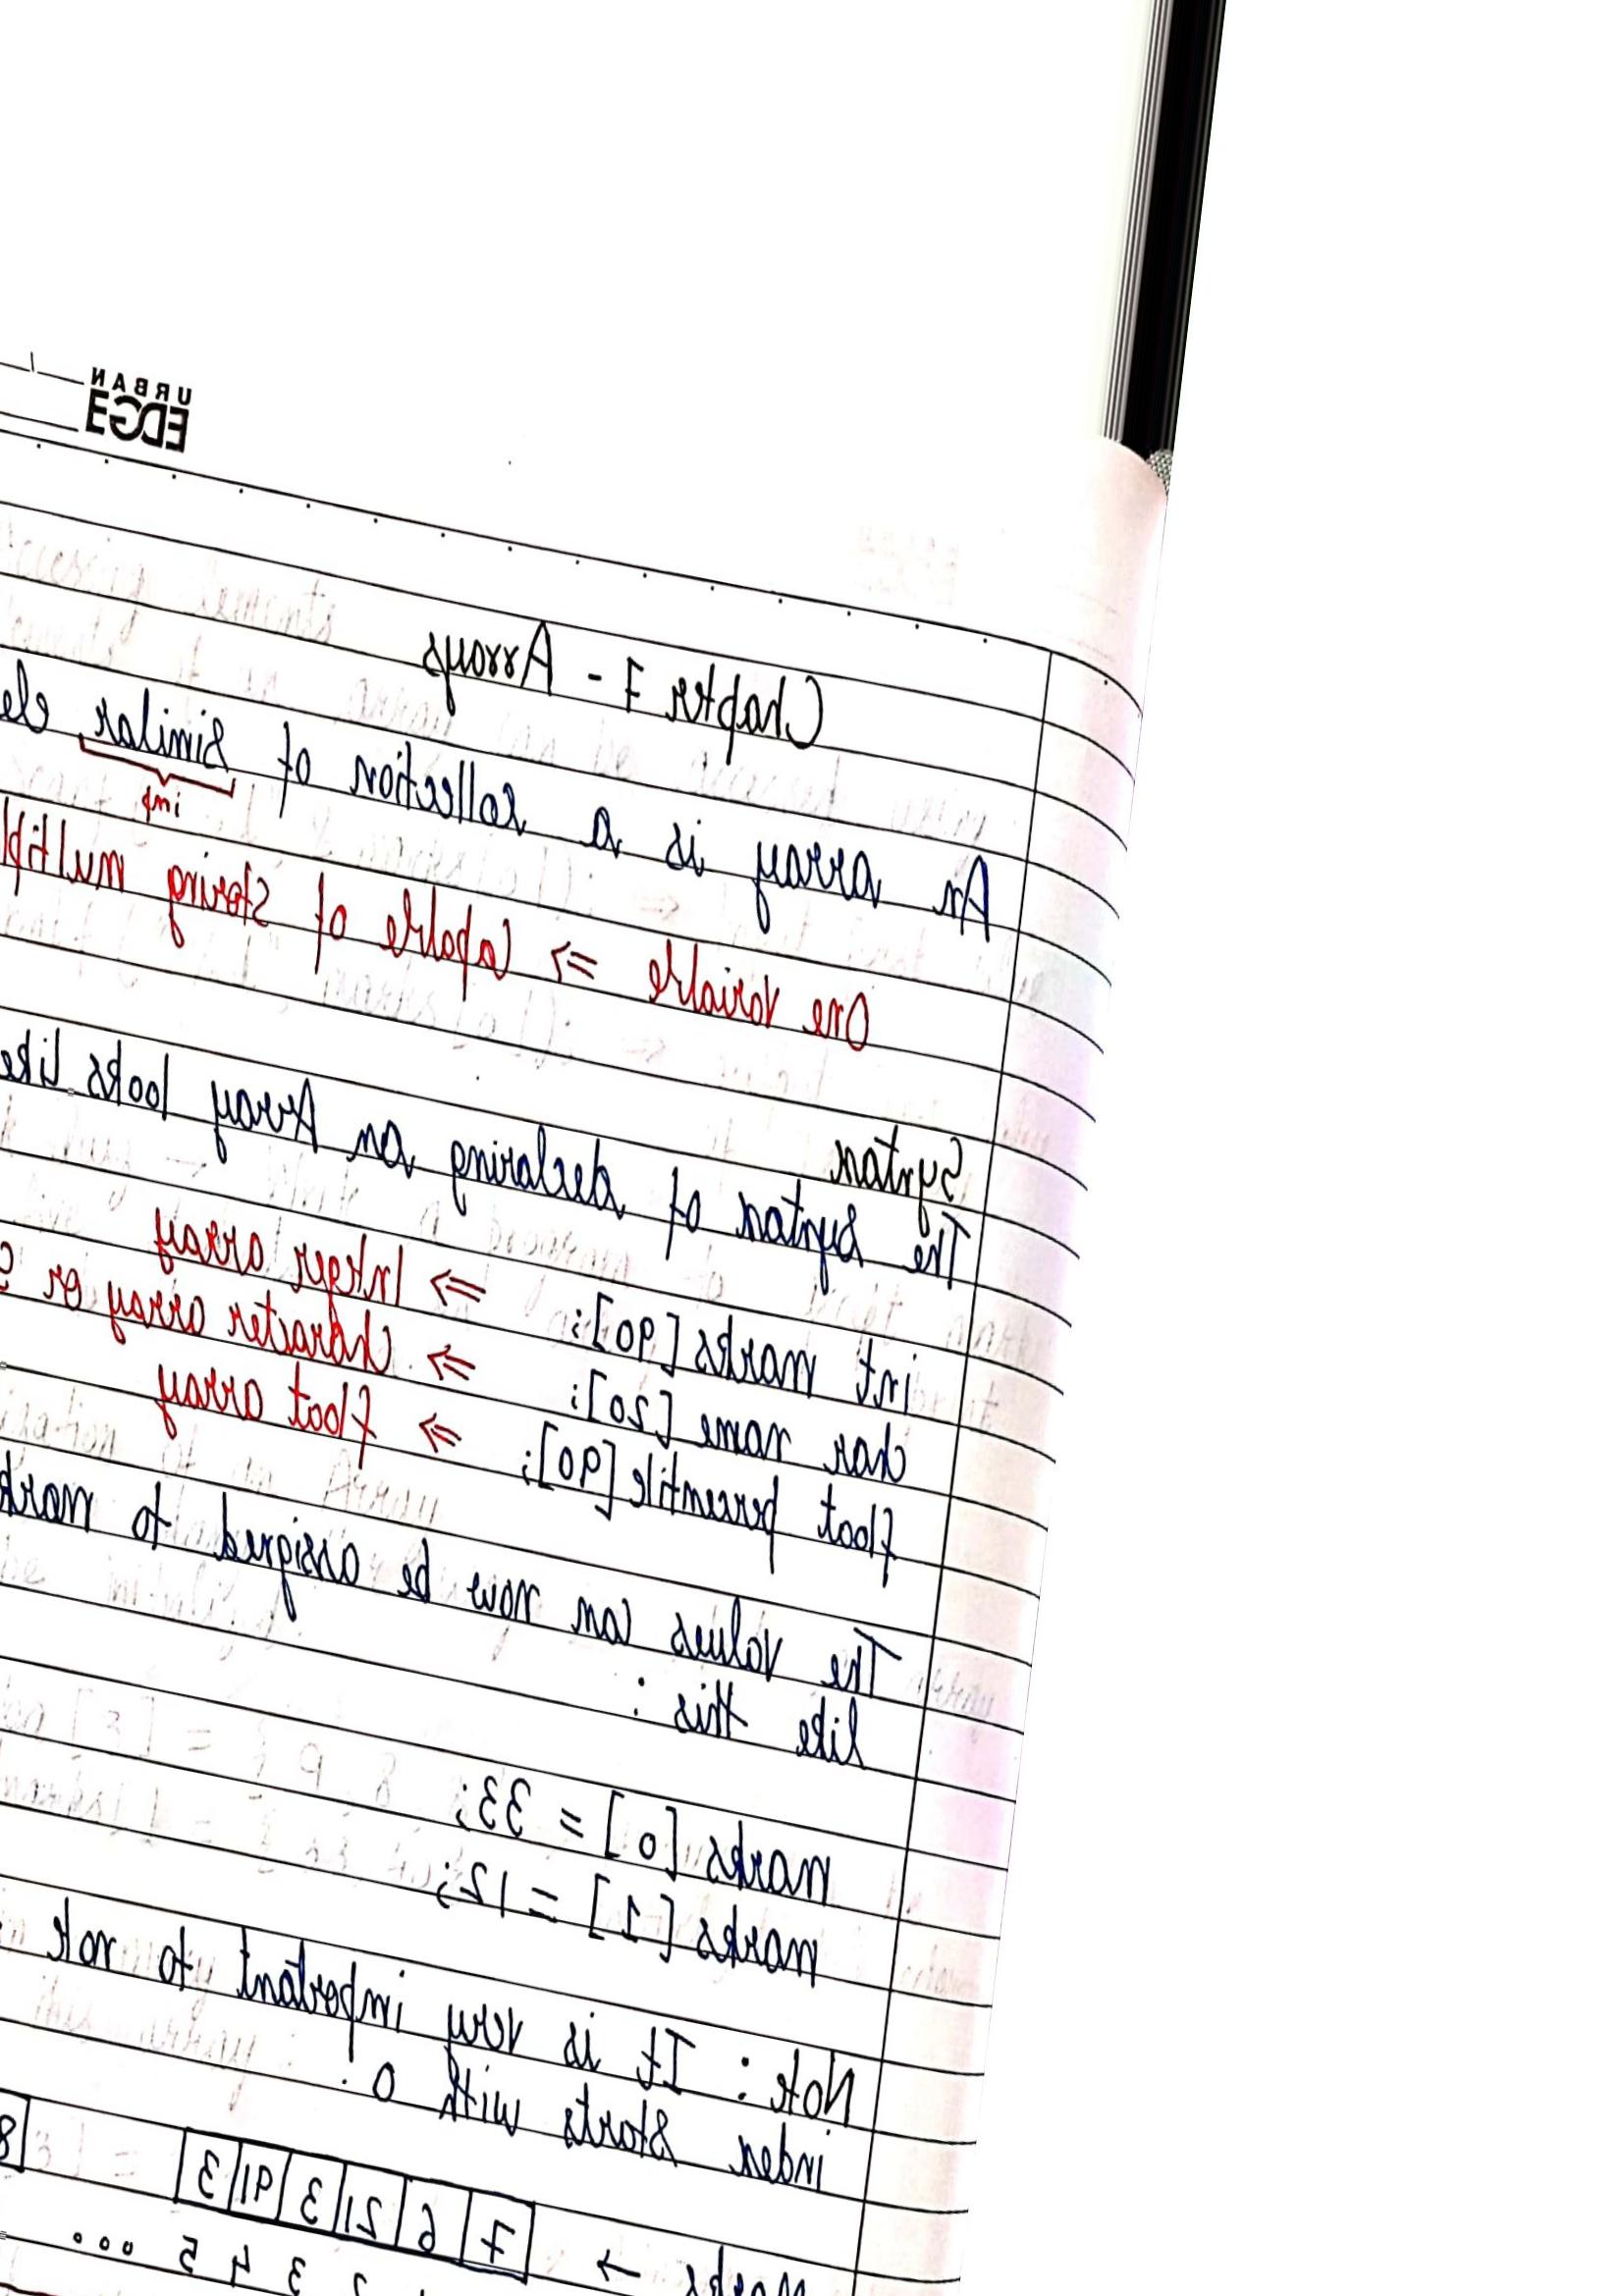 URBAN
EDGE
Chapter 7 - Arrays
An array is a collection of similar ele
imp
One variable ⇒ Capable of storing multipl
Syntax
The syntax of declaring an Array looks like
int marks [90]; ⇒ Integer array
char name [20]; ⇒ Character array or S
float percentile [90]; ⇒ float array
The values can now be assigned to mark
like this :
marks [0] = 33;
marks [1] = 12;
Note : It is very important to note
index starts with 0.
Marks → 7 6 21 3 91 3 8
2 3 4 5 ...